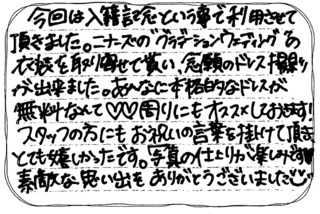 今回は入籍記念という事で利用させて
頂きました。ニナーズの"グラデーションウェディング"の
衣装を取り寄せて貰い、念願のドレス撮影
が出来ました。あんなに本格的なドレスが
無料なんて♡♡周りにもオススメしておきます!
スタッフの方にもお祝いの言葉を掛けて頂き
とても嬉しかったです。写真の仕上りが楽しみです♥
素敵な思い出をありがとうございました